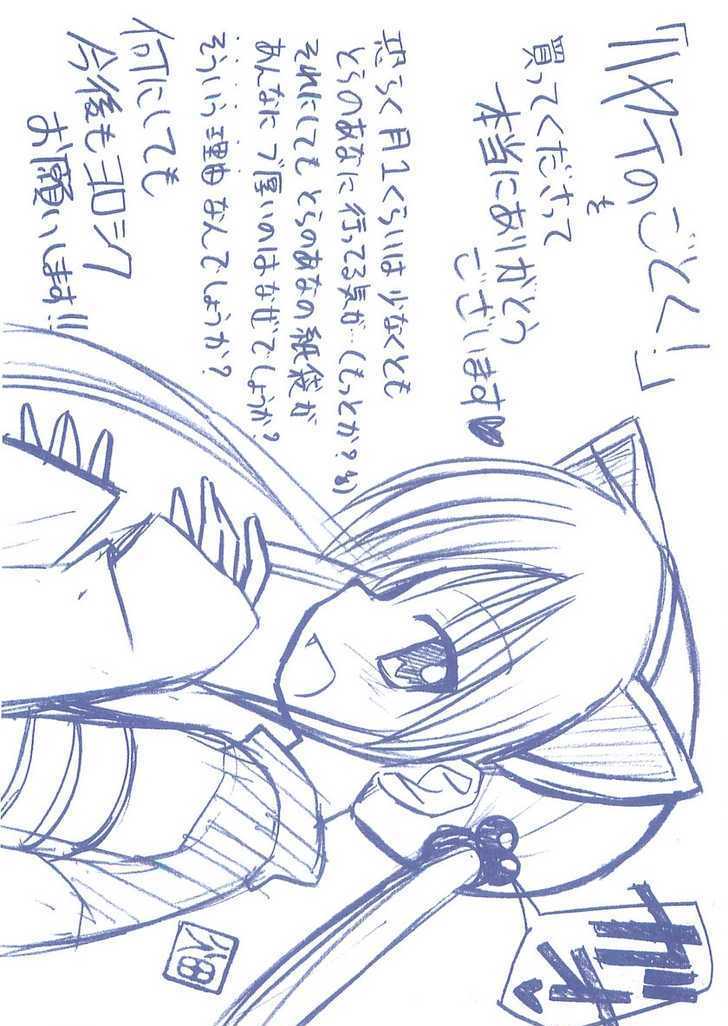 「ハヤテのごとく!」
を
買ってくださって
本当にありがとう
ございます♥
恐らく月1くらいは少なくとも
とらのあなに行ってる気が…(もっとか?
それにしてもとらのあなの紙袋が
あんなにブ厚いのはなぜでしょうか?
そういう理由なんでしょうか?
何にしても
今後もヨロシク
お願いします!!